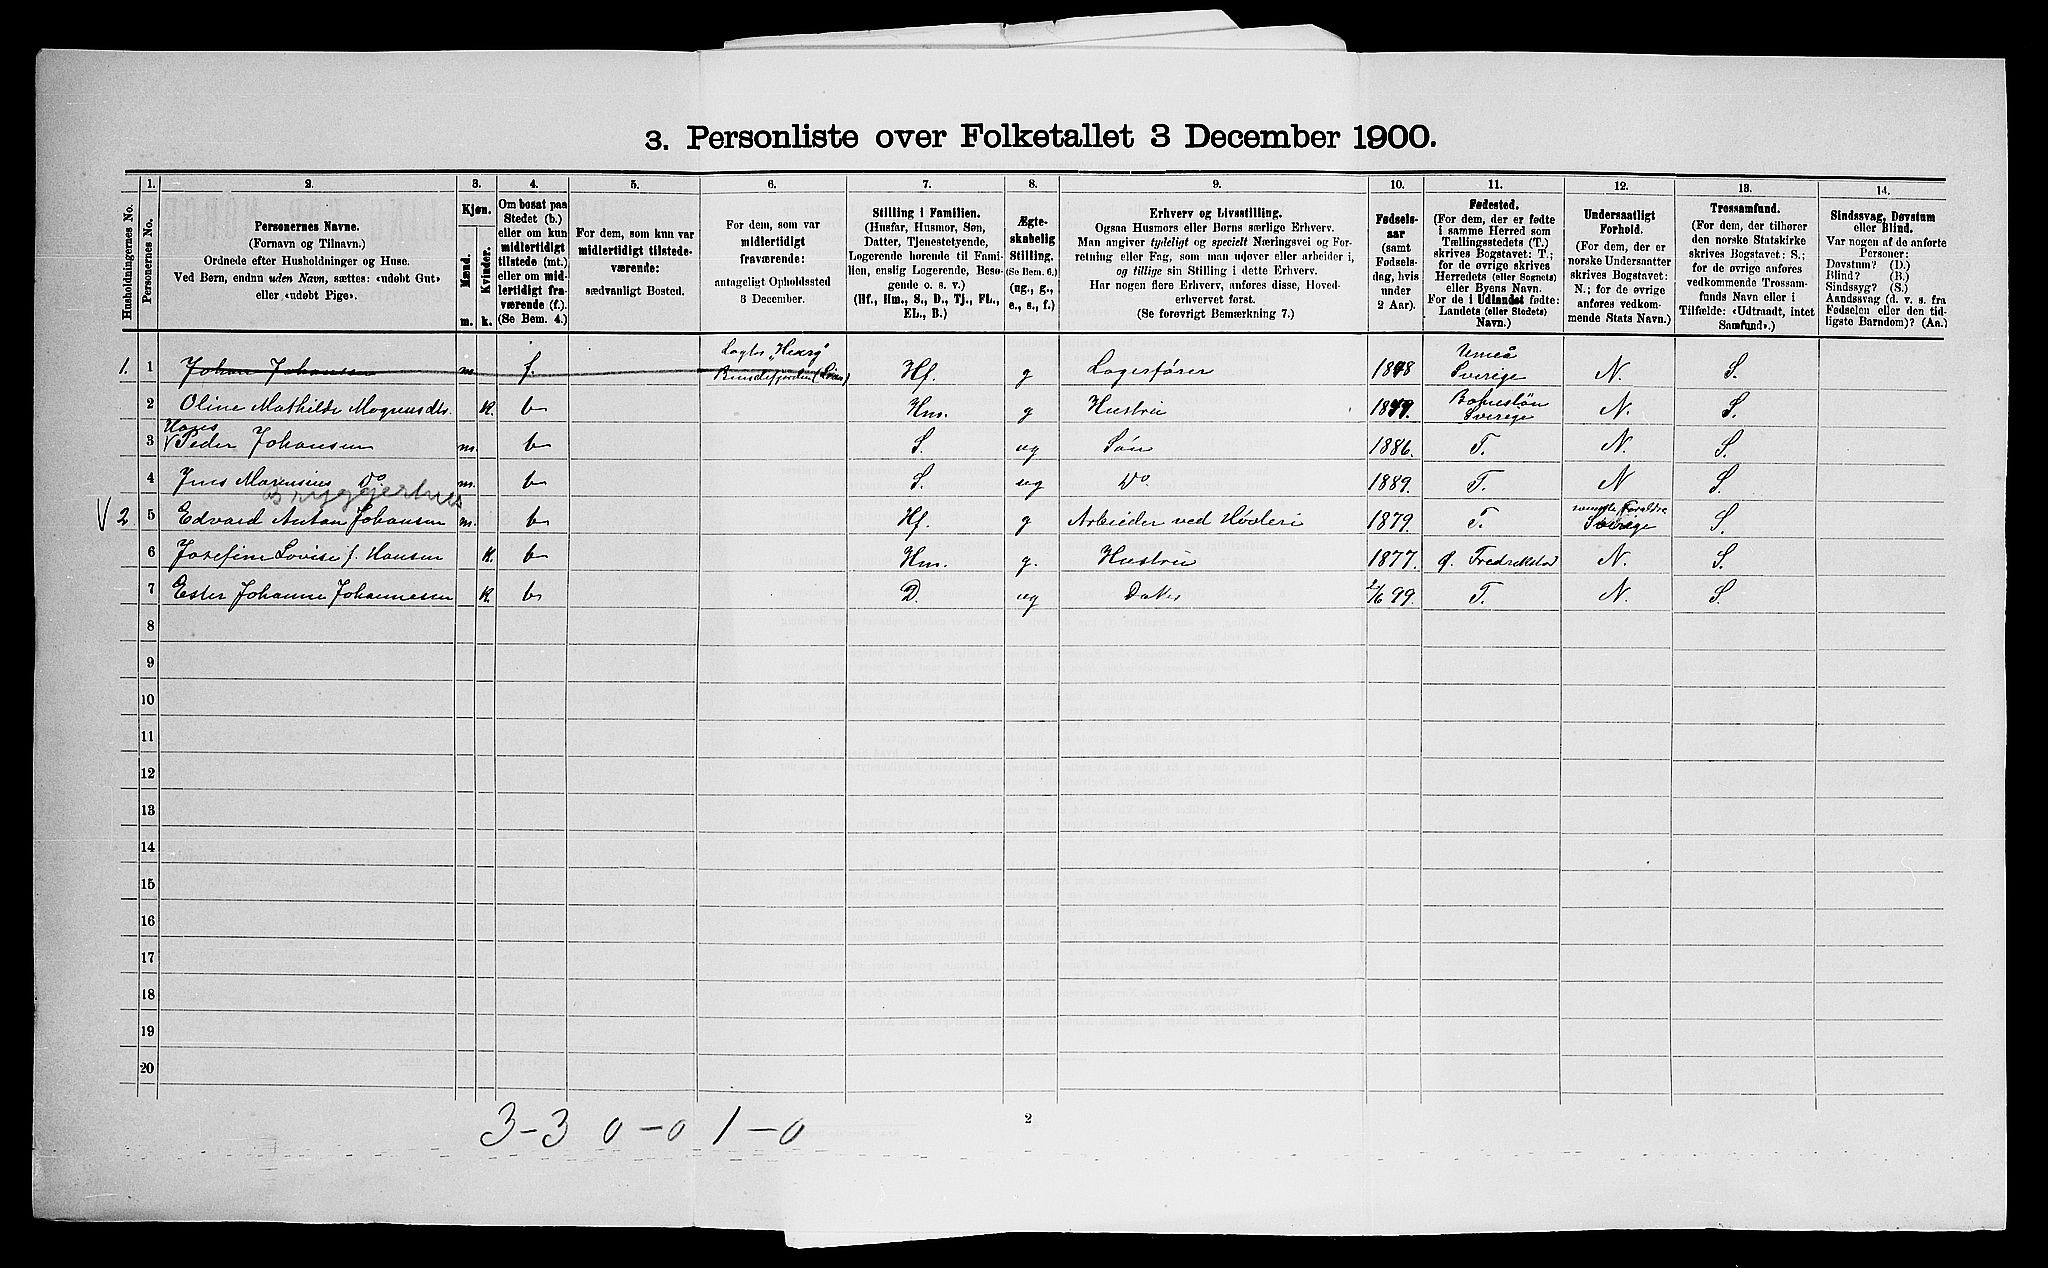 3. Personliste over Folketallet 3 December 1900.
Husholdningernes No.
1.
Personernes No.
2.
Personernes Navne.
(Fornavn og Tilnavn.)
Ordnede efter Husholdninger og Huse.
Ved Børn, endnu uden Navn, sættes: «udøbt Gut»
eller «udøbt Pige».
3.
Kjøn.
Mænd.
Kvinder.
m.
k.
4.
Om bosat paa
Stedet (b.)
eller om kun
midlertidigt
tilstede (mt.)
eller om mid-
lertidigt fra-
værende (f.).
(Se Bem. 4.)
5.
For dem, som kun var
midlertidigt tilstede-
værende:
sædvanligt Bosted.
6.
For dem, som var
midlertidigt
fraværende:
antageligt Opholdssted
3 December.
7.
Stilling i Familien.
(Husfar, Husmor, Søn,
Datter, Tjenestetyende,
Logerende hørende til Fami-
lien, enslig Logerende, Besø-
gende o. s. v.)
(Hf., Hm., S., D., Tj., FL.,
EL., B.)
8.
Ægte-
skabelig
Stilling.
(Se Bem. 6.)
(ug., g.,
e., s., f.)
9.
Erhverv og Livsstilling.
Ogsaa Husmors eller Børns særlige Erhverv.
Man angiver tydeligt og specielt Næringsvei og For-
retning eller Fag, som man udøver eller arbeider i,
og tillige sin Stilling i dette Erhverv.
Har nogen flere Erhverv, anføres disse, Hoved-
erhvervet først.
(Se forøvrigt Bemærkning 7.)
10.
Fødsels-
aar
(samt
Fødsels-
dag, hvis
under
2 Aar).
11.
Fødested.
(For dem, der er fødte
i samme Herred som
Tællingsstedets (T.)
skrives Bogstavet: T.;
for de øvrige skrives
Herredets (eller Sognets)
eller Byens Navn.
For de i Udlandet fødte:
Landets (eller Stedets)
Navn.)
12.
Undersaatligt
Forhold.
(For dem, der er
norske Undersaatter
skrives Bogstavet:
N.; for de øvrige
anføres vedkom-
mende Stats Navn.)
13.
Trossamfund.
(For dem, der tilhører
den norske Statskirke
skrives Bogstavet: S.;
for de øvrige anføres
vedkommende Trossam-
funds Navn eller i
Tilfælde: «Udtraadt, intet
Samfund».)
14.
Sindssvag, Døvstum
eller Blind.
Var nogen af de anførte
Personer:
Døvstum? (D.)
Blind? (B.)
Sindssyg? (S.)
Aandssvag (d. v. s. fra
Fødselen eller den tid-
ligste Barndom)? (Aa.)
1. 1 Johan Johansen m. f. Hf. g 18 8 Umeå Sverige N. S.
2 Oline Mathilde k. b Hm. g Hustru 18 9. Sverige N. S.
Hans
3 V Peder Johansen m. b S. ug Søn 1886. T. N. S.
4 Jens Do m. b S. ug Do. 1889. T. N S.
Bryggerhus
V 2 5 Edvard Anton Johansen m. b Hf. g Arbeider ved Høvleri 1879. T. Sverige S.
6 Josefine Lovise f. Hansen k. b Hm. g. Hustru 1877. Ø. Fredrikstad N. S.
7 Ester Johanne Johannesen k. b D. ug /6 99. T. N. S.
8
9
10
11
12
13
14
15
16
17
18
19
20
3-3 0-0 1-0
2